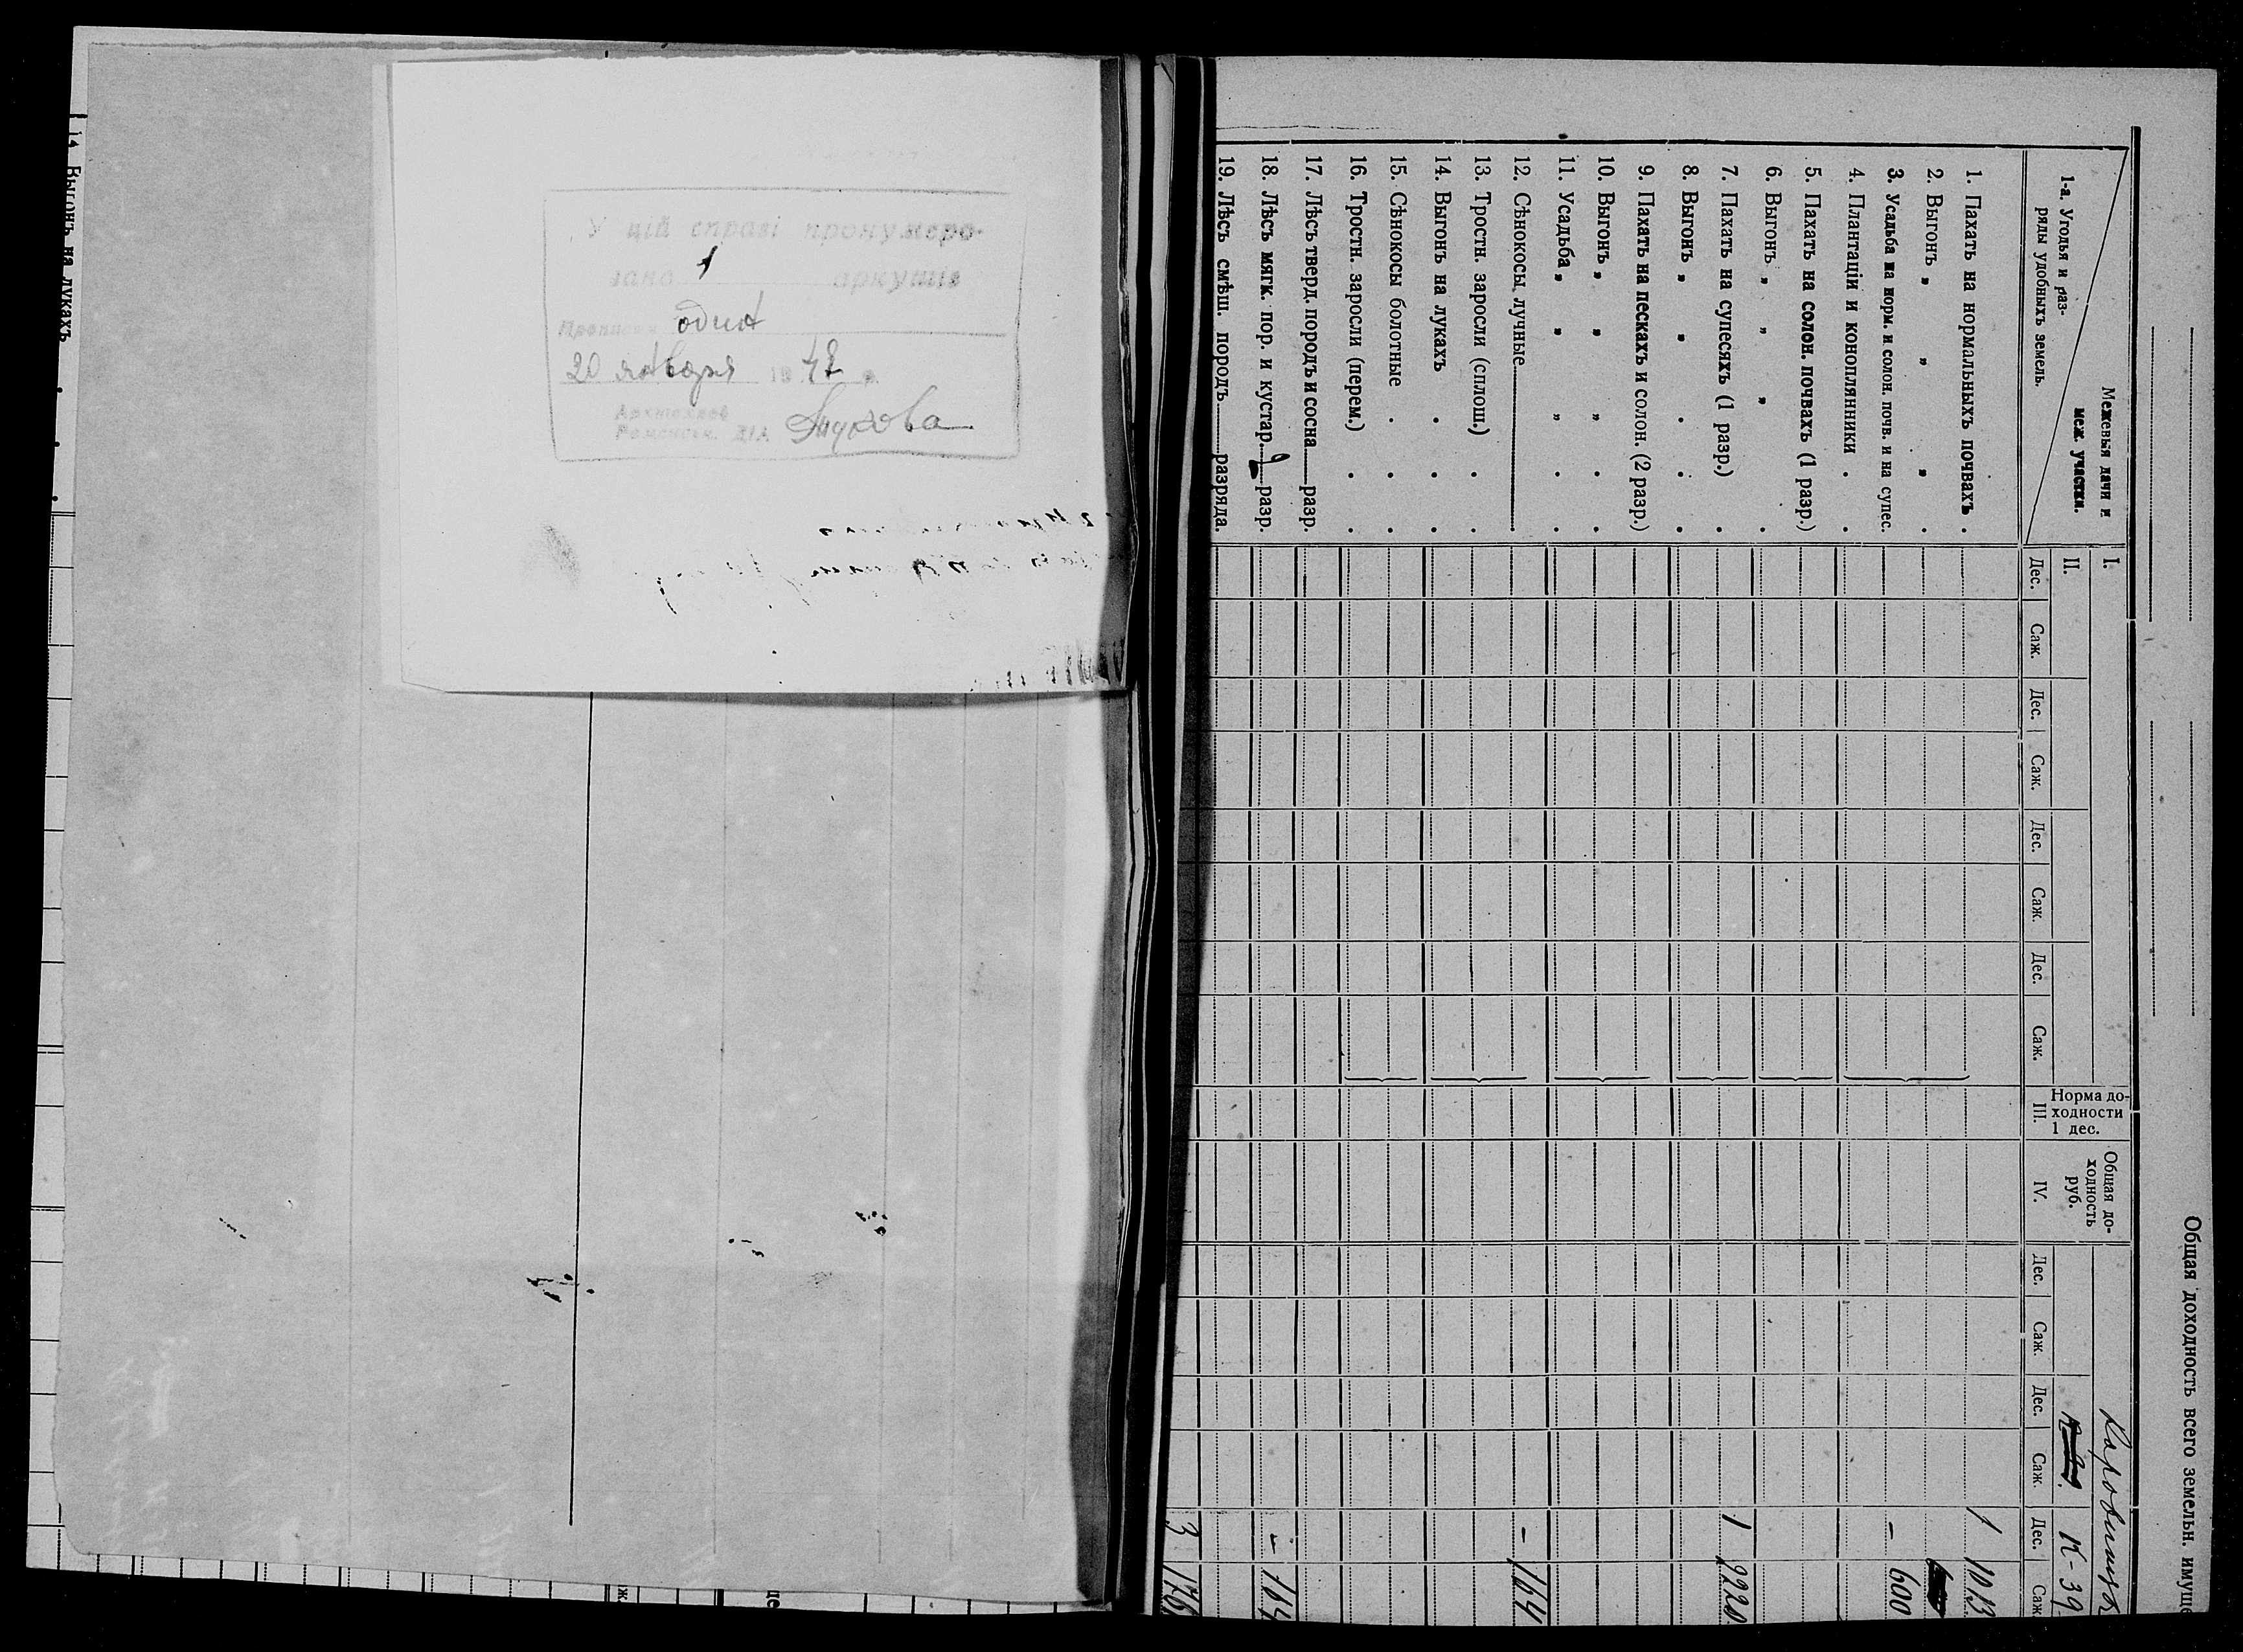 У цій справі пронумеро-
вано 1 аркушів
Прописом один
20 января 19 47 р.
Архівіст
14. Выгонъ на лукахъ
Общая доходность всего земельн. имуще
Межевыя дачи и
меж. участки.
1-а. Угодья и раз-
ряды удобныхъ земель.
I.
II.
Норма до-
ходности
1 дес.
III.
Общая до-
ходность
руб.
IV.
К-39
Дес. Саж. Дес. Саж. Дес. Саж. Дес. Саж. Дес. Саж. Дес. Саж. Дес. Саж.
1. Пахать на нормальныхъ почвахъ . 1 1013
2. Выгонъ „ „ „ .
3. Усадьба на норм. и солон. почв. и на супес. – 600
4. Плантаціи и конопляники . .
5. Пахать на солон. почвахъ (1 разр.)
6. Выгонъ „ „ „ .
7. Пахать на супесяхъ (1 разр.) . 1 2220
8. Выгонъ „ „ . . .
9. Пахать на пескахъ и солон. (2 разр.)
10. Выгонъ „ „ „ . .
11. Усадьба „ „ „ . .
12. Сѣнокосы лучные . – 164
13. Тростн. заросли (сплош.) . .
14. Выгонъ на лукахъ . . .
15. Сѣнокосы болотные . . .
16. Тростн. заросли (перем.) . .
17. Лѣсъ тверд. породъ и сосна разр.
18. Лѣсъ мягк. пор. и кустар. 2 разр. – 164
19. Лѣсъ смѣш. породъ разряда.
3